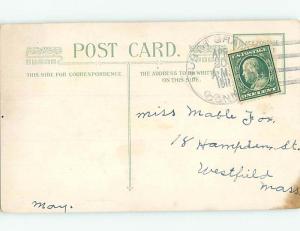 POST CARD.
THIS SIDE FOR CORRESPONDENCE
THE ADDRESS TO BE WRITTEN ON THIS SIDE
CONN
U.S. POSTAGE
ONE CENT
miss Mable Fox.
18 Hampden St.
Westfild
Mass
May.